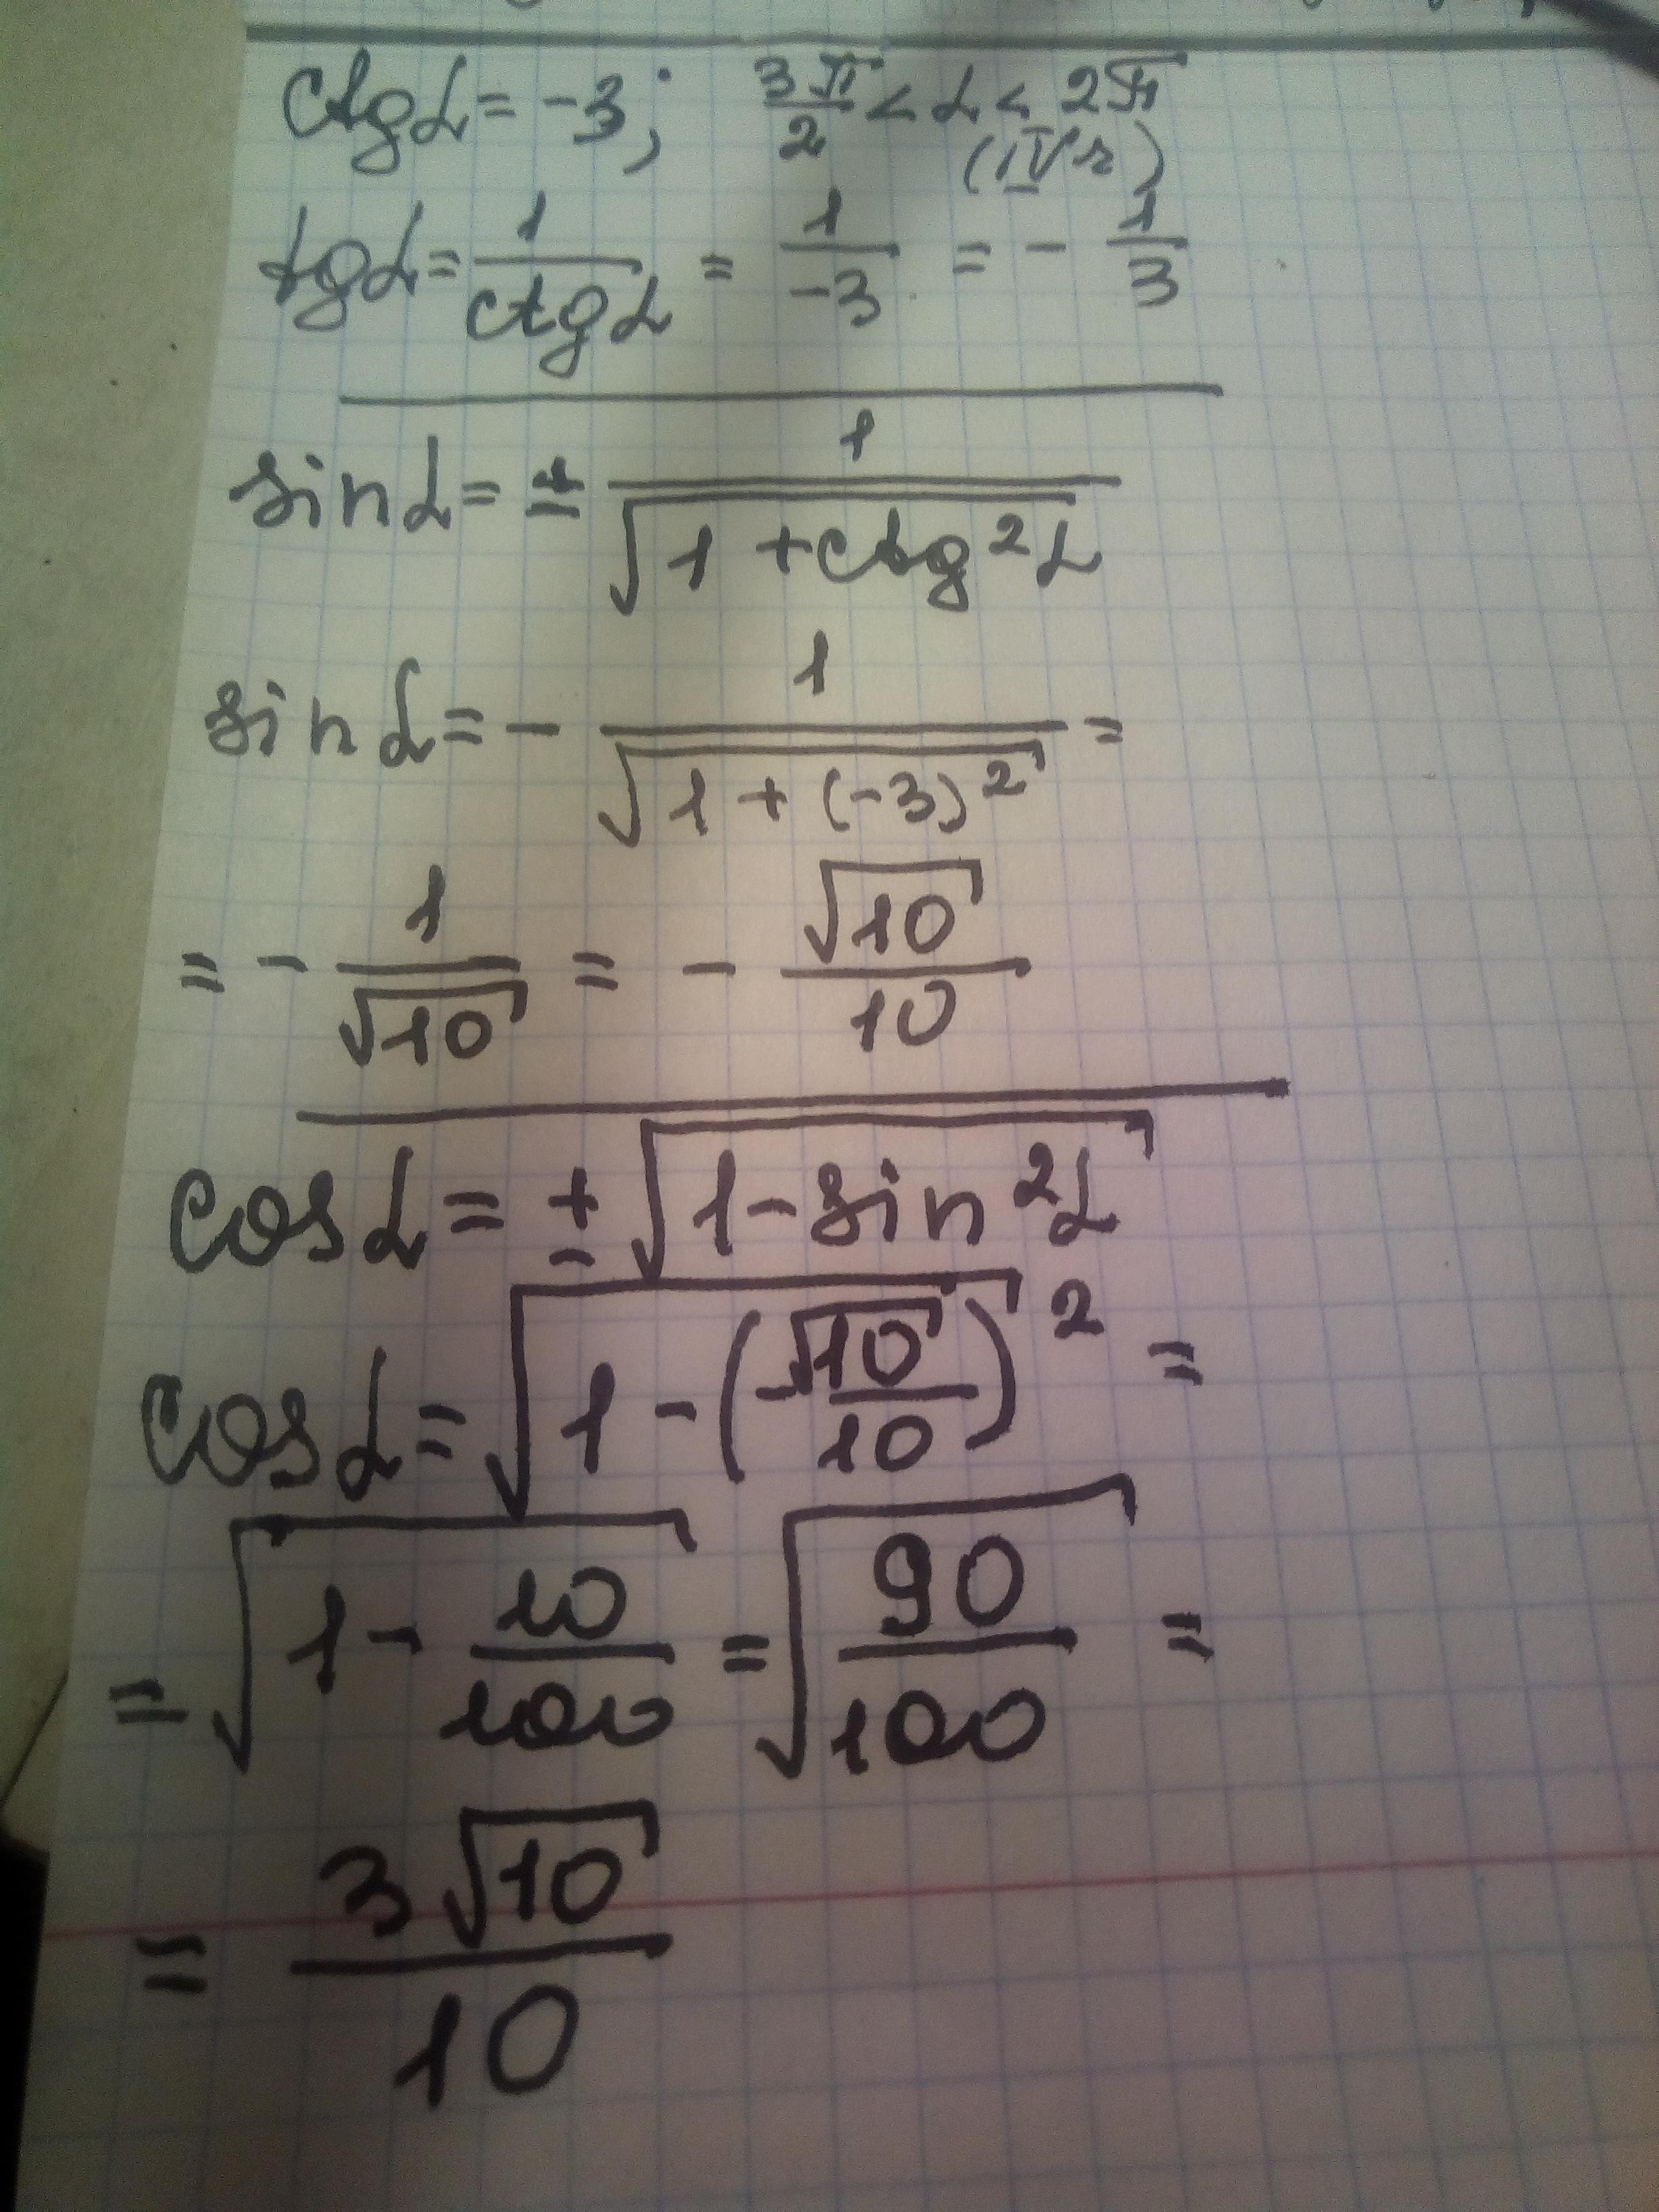 ctgα = -3; 3π/2 < α < 2π
(IV r)
tgα = 1/ctgα = 1/-3 = - 1/3
sinα = ± 1/√(1 + ctg²α)
sinα = - 1/√(1 + (-3)²) =
= - 1/√10 = - √10/10
cosα = ± √(1 - sin²α)
cosα = √(1 - (-√10/10)²) =
= √(1 - 10/100) = √(90/100) =
= 3√10/10